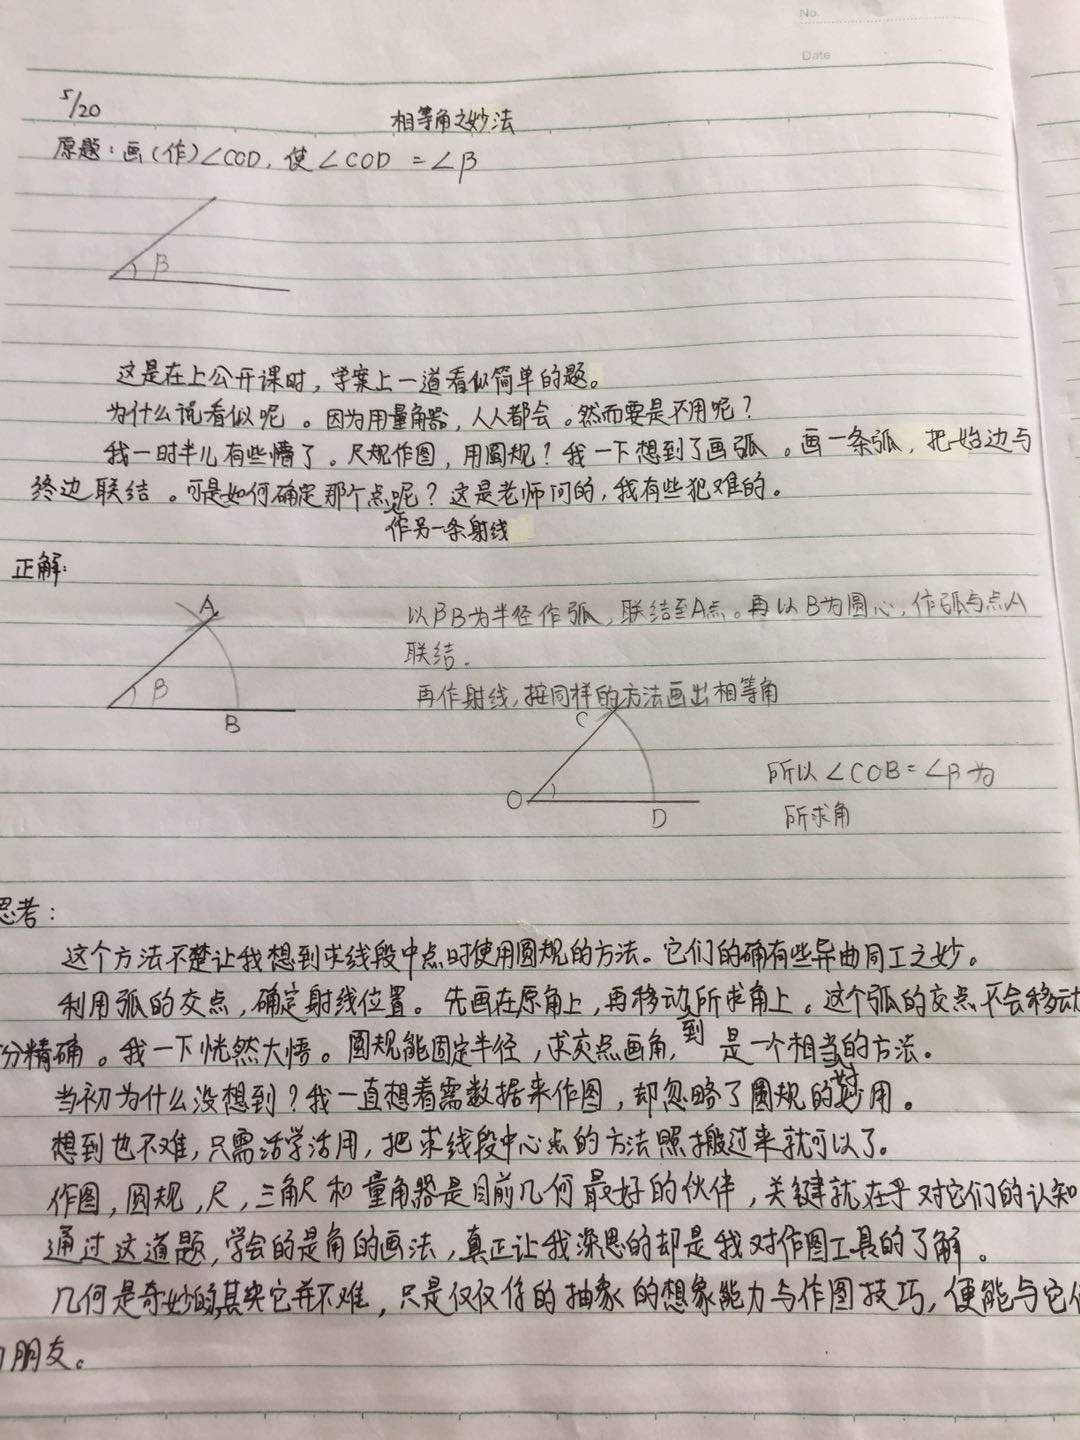 No.
Date
5/20
相等角之妙法
原题：画(作)∠COD，使∠COD=∠β
β
这是在上公开课时，学案上一道看似简单的题。
为什么说看似呢。因为用量角器，人人都会。然而要是不用呢？
我一时半儿有些懵了。尺规作图，用圆规？我一下想到了画弧。画一条弧，把一始边与
终边联结。可是如何确定那个点呢？这是老师问的，我有些犯难的。
作另一条射线
正解：
A
β
B
以βB为半径作弧，联结至A点。再以B为圆心，作弧与点A
联结.
再作射线，按同样的方法画出相等角
C
O
D
所以∠COB=∠β为
所求角
思考：
这个方法不禁让我想到求线段中点时使用圆规的方法。它们的确有些异曲同工之妙。
利用弧的交点，确定射线位置。先画在原角上，再移动到所求角上。这个弧的交点不会移动
分精确。我一下恍然大悟。圆规能固定半径，求交点画角，是一个相当的方法。
当初为什么没想到？我一直想着需数据来作图，却忽略了圆规的妙用。
想到也不难，只需活学活用，把求线段中心点的方法照搬过来就可以了。
作图，圆规，尺，三角尺和量角器是目前几何最好的伙伴，关键就在乎对它们的认知
通过这道题，学会的是角的画法，真正让我深思的却是我对作图工具的了解。
几何是奇妙的，其实它并不难，只是仅仅你的抽象的想象能力与作图技巧，便能与它们
朋友。